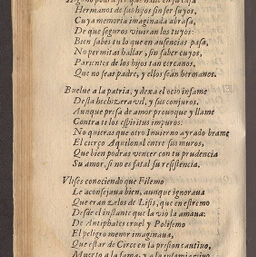 Hermanos de sus hijos sin ser suyos,
Cuya memoria imaginada abrasa,
De que seguros viuiran los tuyos:
Bien sabes tu lo que en ausencias passa,
No permitas hallar, sin saber cuyos,
Parientes de los hijos tan cercanos,
Que no seas padre, y ellos sean hermanos.
Buelue a la patria, y dexa el ocio infame
Desta hechizera vil, y sus conjuros,
Aunque presa de amor prouoque y llame
Contra ti los espiritus impuros:
No quieras que otro Inuierno ayrado brame
El cierço Aquilonal entre sus muros,
Que bien podras vencer con tu prudencia
Su amor, si no es fatal su resistencia.
Vlises conociendo que Filemo
Le aconsejaua bien, aunque ignoraua
Que eran zelos de Lisis, que en estremo
Desde el instante que la vio la amaua:
De Antiphates cruel y Polifemo
El peligro menor imaginaua,
Que estar de Circe en la prision cautiuo,
Muerto a la fama, y a